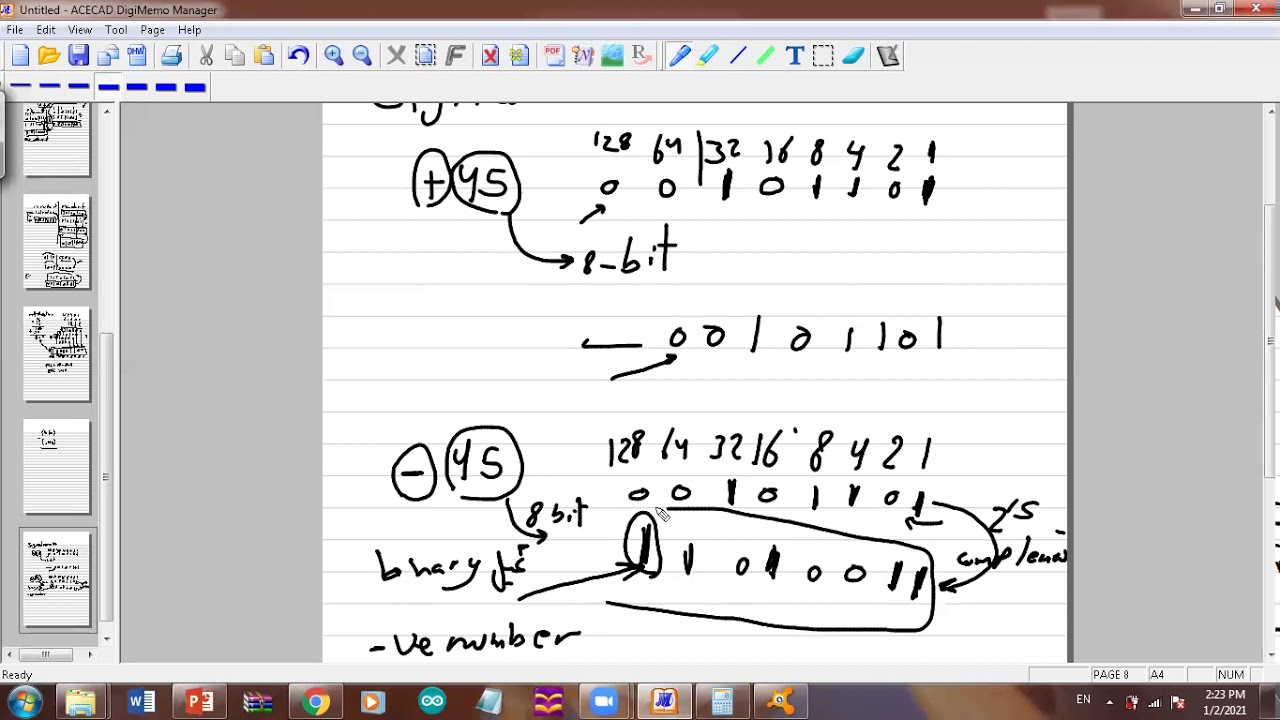 Untitled - ACECAD DigiMemo Manager
File Edit View Tool Page Help
128 64 32 16 8 4 2 1
+ 45 0 0 1 0 1 1 0 1
8-bit
0 0 1 0 1 1 0 1
- 45 128 64 32 16 8 4 2 1
0 0 1 0 1 1 0 1
8 bit 2's
binary 1 1 0 1 0 0 1 1
-ve number
Ready PAGE 8 A4 NUM
EN 2:23 PM
1/2/2021